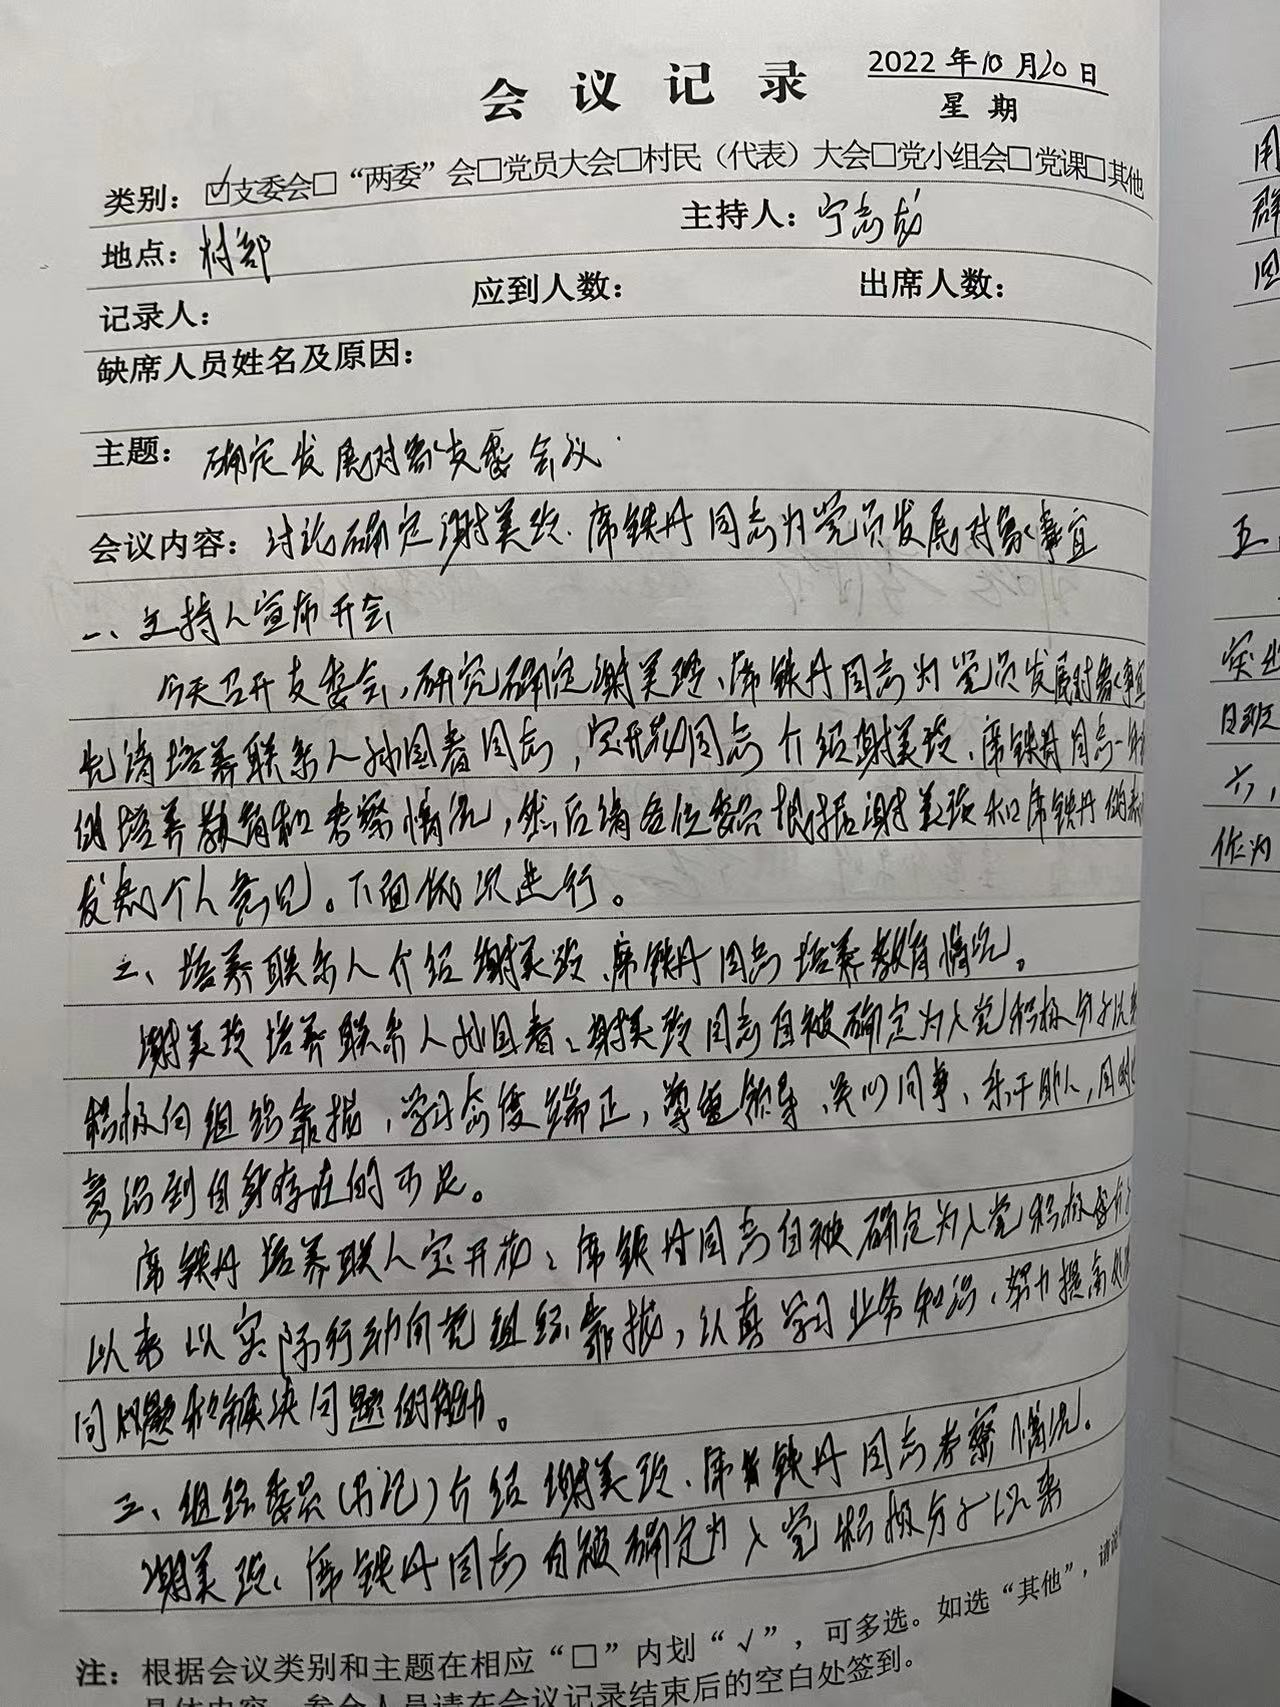 会议记录
2022 年 10 月 20 日
星 期
类别：☑支委会□“两委”会□党员大会□村民（代表）大会□党小组会□党课□其他
地点：村部 主持人：宁志
记录人： 应到人数： 出席人数：
缺席人员姓名及原因：
主题：确定发展对象支委会议
会议内容：讨论确定谢美玲、席铁丹同志为党员发展对象事宜
一、主持人宣布开会
今天召开支委会，研究确定谢美玲、席铁丹同志为党员发展对象事宜
先请培养联系人孙国春同志，宝开花同志介绍谢美玲、席铁丹同志一
的培养教育和考察情况，然后请各位委员根据谢美玲和席铁丹的
发表个人意见。下面依次进行。
二、培养联系人介绍谢美玲、席铁丹同志培养教育情况。
谢美玲培养联系人孙国春：谢美玲同志自被确定为入党积极分子以来
积极向组织靠拢，学习态度端正，尊重领导、关心同事、乐于助人，同时
意识到自身存在的不足。
席铁丹培养联人宝开花：席铁丹同志自被确定为入党积极分子
以来以实际行动向党组织靠拢，认真学习业务知识、努力提高
问题和解决问题的能力。
三、组织委员（书记）介绍谢美玲、席铁丹同志考察情况。
谢美玲、席铁丹同志自被确定为入党积极分子以来
注：根据会议类别和主题在相应“□”内划“√”，可多选。如选“其他”，请
具体内容。参会人员请在会议记录结束后的空白处签到。
用
群
回
五
突出
日班
六、
作为